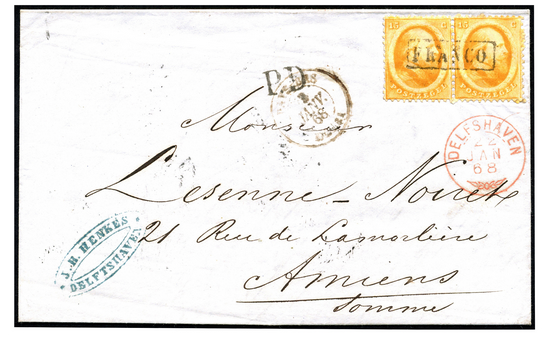 15 C 15 C
FRANCO
POSTZEGEL POSTZEGEL
P.D.
JANV. 68
DELFSHAVEN
22
JAN
68
Monsieur
Lesenne-Noiret
21 Rue de Lamorlière
Amiens
Somme
J.H. HENKES
DELFTSHAVEN